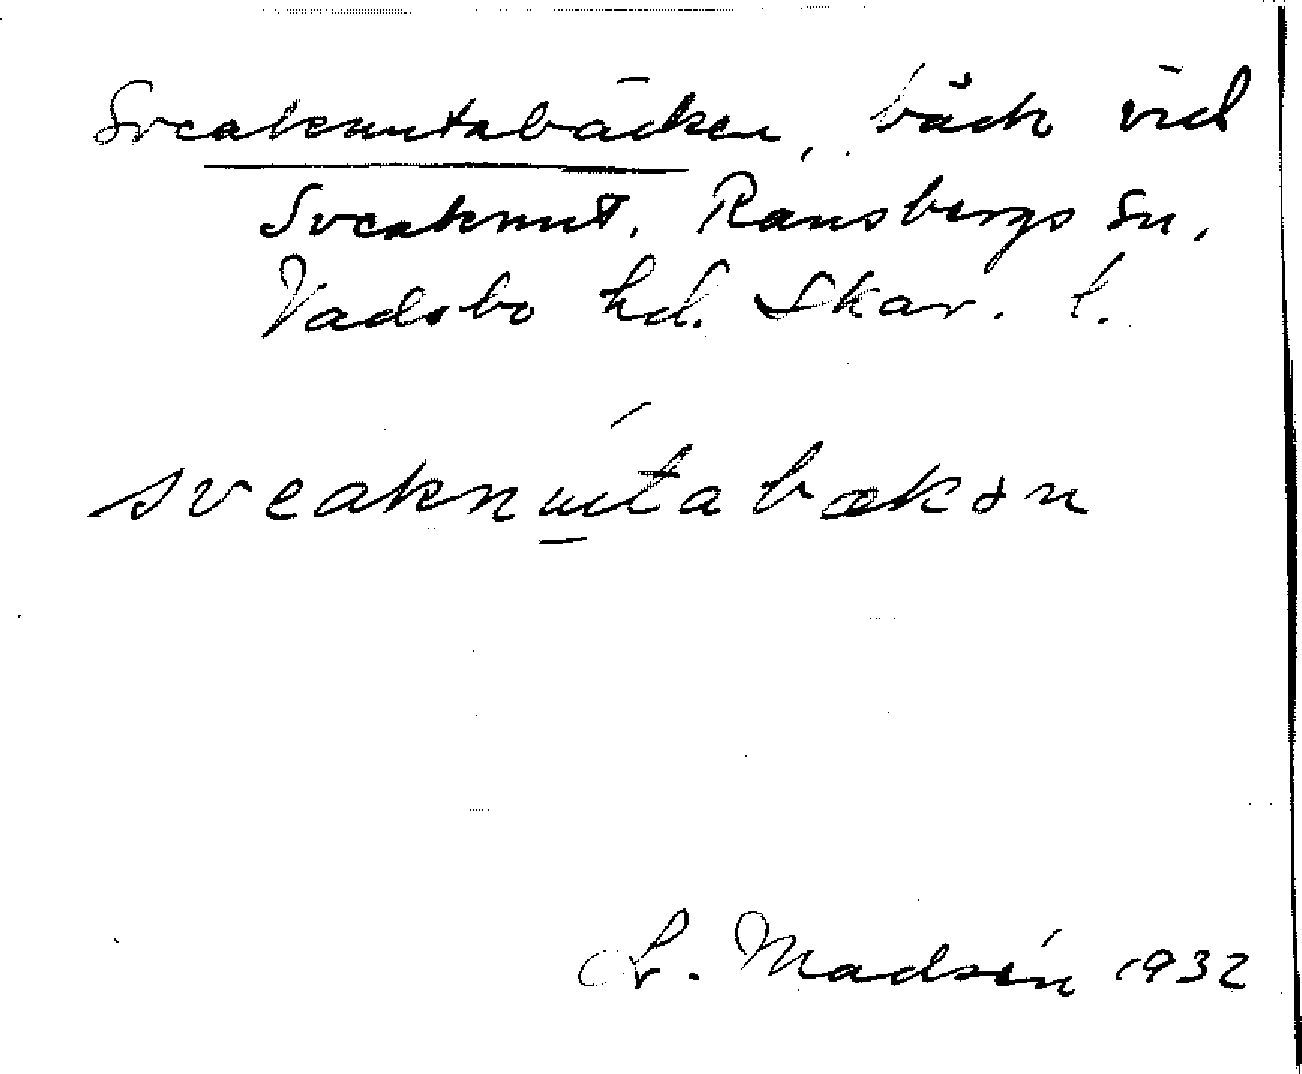 Sveaknutabäcken, bäck vid
Sveaknut, Ransbergs sn,
Vadsbo hd. Skar. l.
sveaknu̲tabækən
Madsén 1932